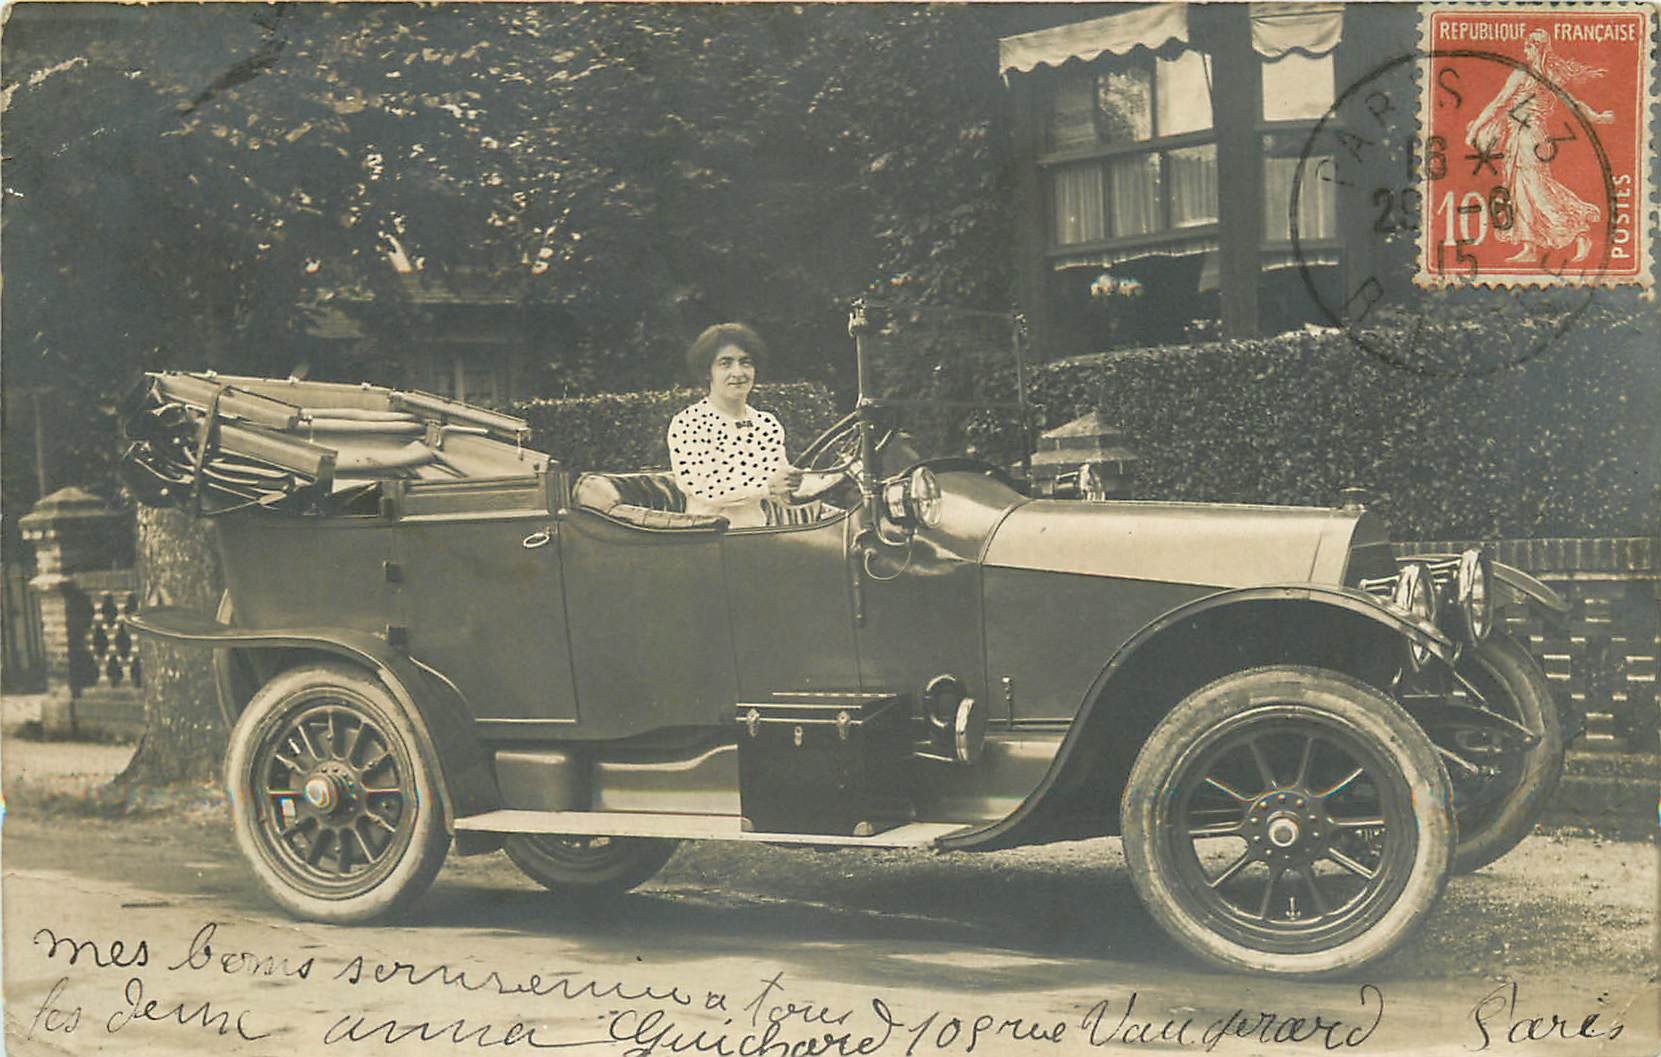 REPUBLIQUE FRANÇAISE
10
POSTES
PARIS 43
16 *
29 -6
15
mes bons souvenir a tous
les deux anna Guichard 109 rue Vaugirard Paris